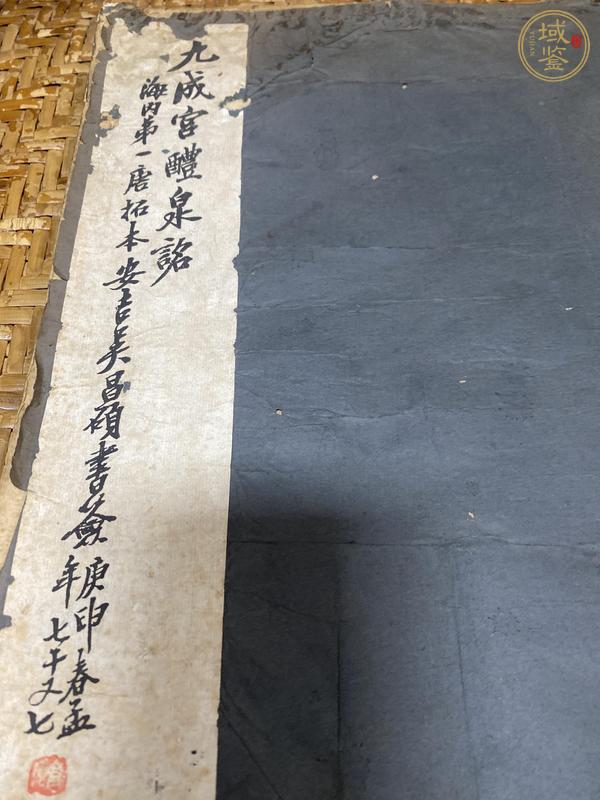 九成宫醴泉銘
海内第一唐拓本安吉吴昌碩書簽
庚申春孟
年七十又七
域鉴